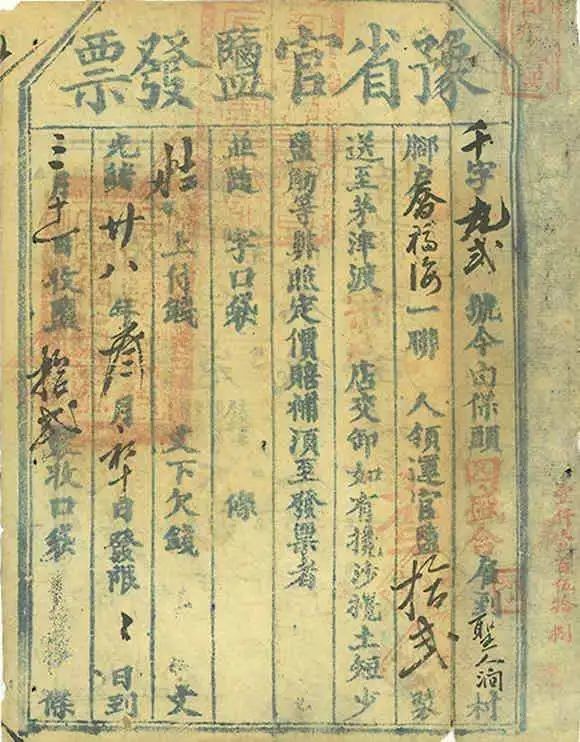 豫省官鹽發票
千字九貳 號今向保頭 四盛合 雇到聖人澗村
脚 喬福海 一聯 人領運官鹽 拾貳 袋
送至茅津渡 店交卸如有攙沙攙土短少
鹽觔等弊照定價賠補須至發票者
並隨 字口袋 條
上付錢 文下欠錢 文
光緒 廿八 年 叁 月 初十 日發限 日到
三月十一日收鹽 拾貳 袋收口袋 條